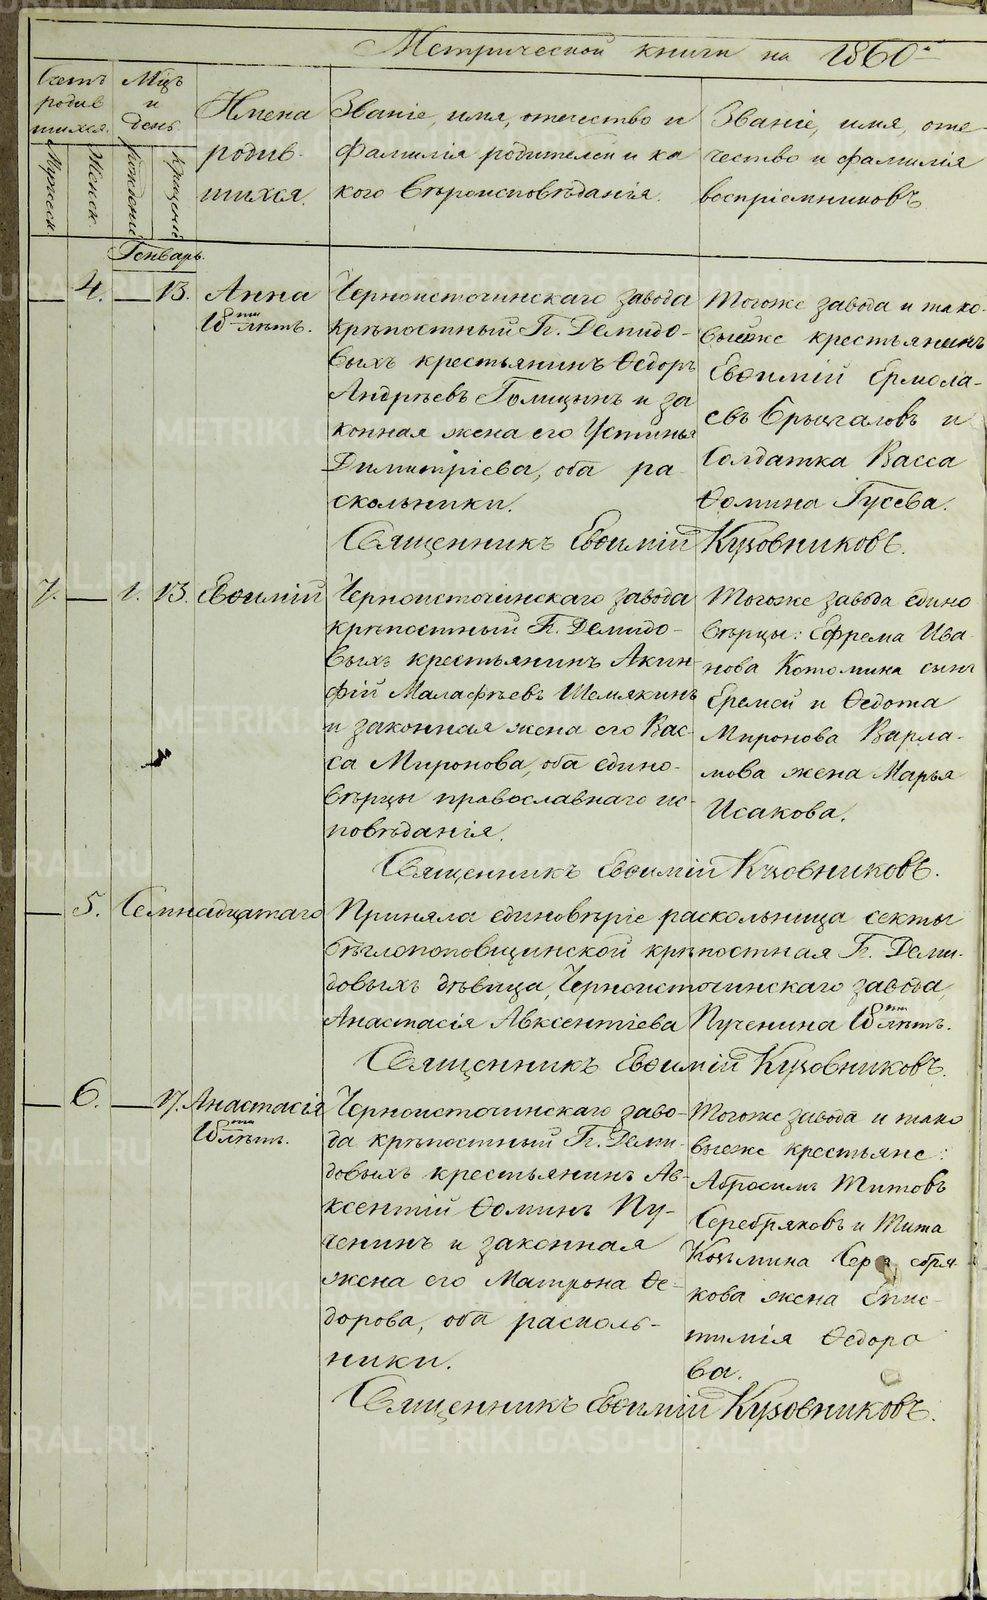 Метрической книги на 1860й
Счетъ родив шихся.
Мужеск.
Женск.
Мцъ и день
рожденія
крещенія
Имена родив- шихся.
Званіе, имя, отчество и фамилія родителей и ка кого вѣроисповѣданія.
Званіе, имя, отче- чество и фамилія воспріемниковъ
Генварь.
4.
13.
Анна
18ти лѣтъ.
Черноисточинскаго завода
крѣпостный Гг. Демидо-
выхъ крестьянинъ Ѳедоръ
Андреевъ Голицынъ и за
конная жена его Устинья
Димитріева, оба ра-
скольники.
Тогоже завода и тако-
выеже крестьянинъ
Евѳимій Ермола-
евъ Брызгаловъ и
Солдатка Васса
Ѳомина Гусева.
Священникъ Евѳимій Кузовниковъ.
7.
1.
13.
Евѳимій
Черноисточинскаго завода
крѣпостный Гг. Демидо-
выхъ крестьянинъ Акин-
фій Малафѣевъ Шемякинъ
и законная жена его Вас-
са Миронова, оба едино-
вѣрцы православнаго ис-
повѣданія.
Тогоже завода едино
вѣрцы: Ефрема Ива-
нова Котомина сынъ
Еремей и Ѳедота
Миронова Варла-
мова жена Марья
Исакова.
Священникъ Евѳимій Кузовниковъ.
5.
Семнадцатаго
Приняла единовѣріе раскольница секты
бѣглопоповщинской крѣпостная Гг. Деми-
довыхъ дѣвица, Черноисточинскаго завода,
Анастасія Авксентіева Пученина 18ти лѣтъ.
Священникъ Евѳимій Кузовниковъ.
6.
17.
Анастасія
18ти лѣтъ.
Черноисточинскаго заво-
да крѣпостный Гг. Деми-
довыхъ крестьянинъ Ав-
ксентій Ѳоминъ Пу-
ченинъ и законная
жена его Матрона Ѳе-
дорова, оба расколь-
ники.
Тогоже завода и тако
выеже крестьяне:
Абросимъ Титовъ
Серебряковъ и Тита
Козьмина Серебря-
кова жена Епис-
тимія Ѳедоро
ва.
Священникъ Евѳимій Кузовниковъ.
METRIKI.GASO-URAL.RU